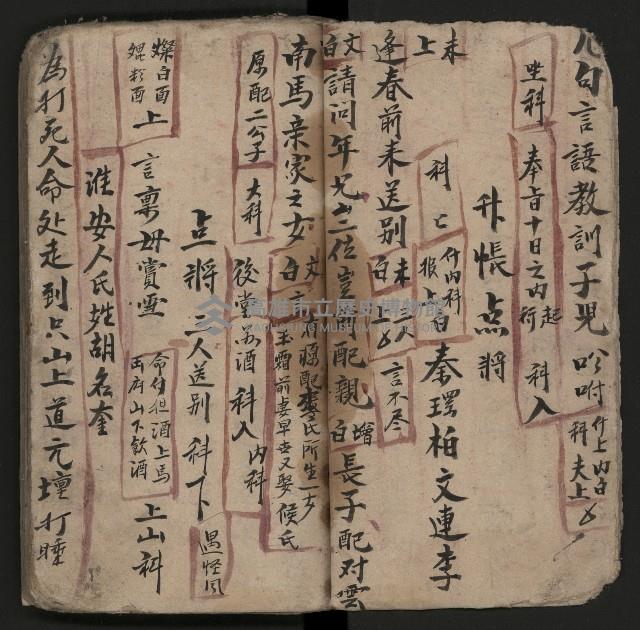 几句言語教訓子兒 吩咐 什上內白 科 夫上
坐科 奉旨十日之內起行 科入
升帳点將
科上 什內科 報上白 秦瑶柏文連李
未上
逢春前来送别 未白 言不尽
文白 請問年兄 二位 配親 增白 長子配对雲
南馬亲家之女 文白 李氏所生一女
玉霜前妻早去又娶候氏
原配二公子 大科 後堂 酒 科入 內科
点將 三人送别 科下 遇怪風
燦白面 鯤粉面 上 言禀母賞雪 命什担酒上馬 西府山下飲酒 上山科
淮安人氏姓胡名奎
為打死人命处走到只山上道元壇打睡
高雄市立歷史博物館
KAOHSIUNG MUSEUM OF HISTORY